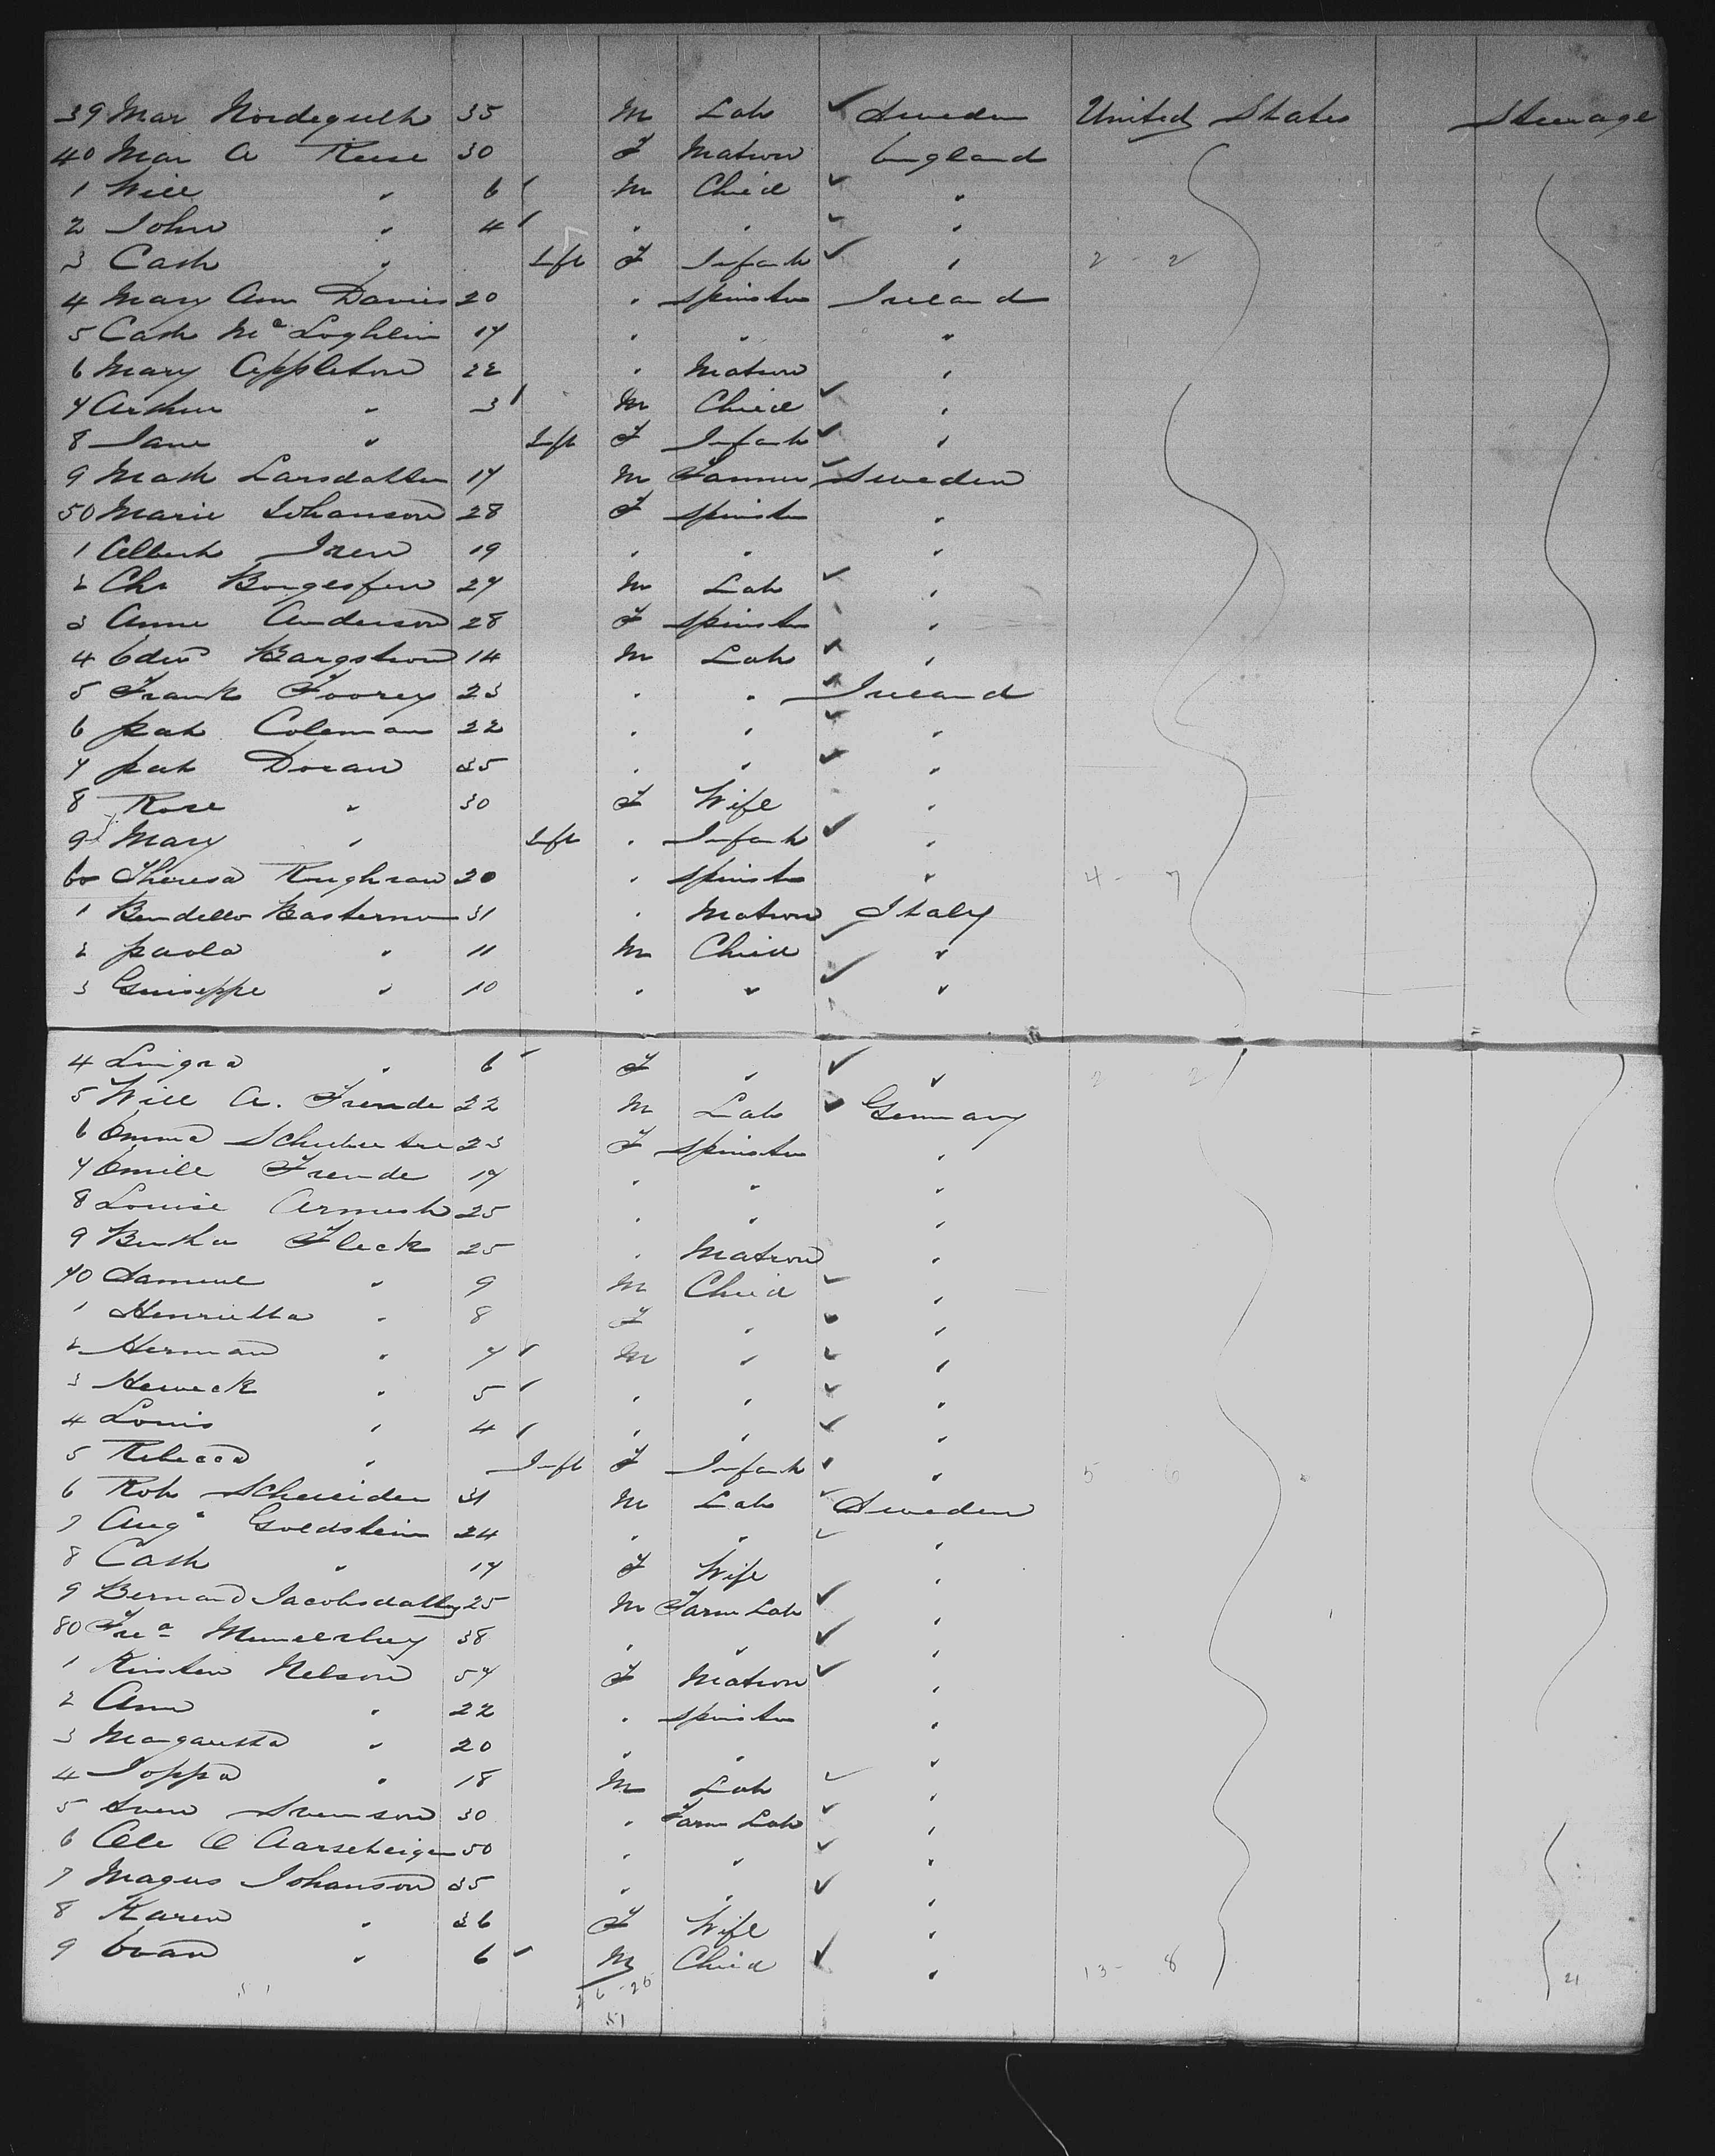 39 Mar Nordequith 35 M Lab Sweden United States Steerage
40 Mar A Reese 30 F Matron England
1 Will " 6 M Child "
2 John " 4 " " "
3 Cath " Inft F Infant "
4 Mary Ann Davies 20 " Spinster Ireland
5 Cath McLoghlin 17 " " "
6 Mary Appleton 22 " Matron "
7 Arthur " 3 M Child "
8 Jane " Inft F Infant "
9 Math Larsdatter 17 M Farmer Sweden
50 Marie Johanson 28 F Spinster "
1 Albert 19 " " "
2 Chr 27 M Lab "
3 Anne Anderson 28 F Spinster "
4 Edwd Bargstrom 14 M Lab "
5 Frank Foorey 23 " " Ireland
6 Pat Coleman 22 " " "
7 Pat Doran 35 " " "
8 Rose " 30 F Wife "
9 Mary " Inft " Infant "
60 Theresa Roughran 20 " Spinster " 4 - 7
1 Bendello Basterno 31 " Matron Italy
2 Paolo " 11 M Child "
3 Guiseppe " 10 " " "
4 Luigra " 6 F " "
5 Will A. Frende 22 M Lab Germany
6 Emma 23 F Spinster "
7 Emile Frende 17 " " "
8 Louise Armesh 25 " " "
9 Bertha Fleck 25 " Matron "
70 Samuel " 9 M Child "
1 Henrietta " 8 F " "
2 Herman " 7 M " "
3 Heweck " 5 " " "
4 Louis " 4 " " "
5 Rebecca " Inft F Infant " 5 6
6 Rob Schneider 31 M Lab Sweden
7 Augt Goldstein 24 " " "
8 Cath " 17 F Wife "
9 Bernard Jacobsdatter 25 M Farm Lab "
80 Fred Muncesbey 38 " " "
1 Kirstin Nelson 57 F Matron "
2 Ann " 22 " Spinster "
3 Margaretta " 20 " " "
4 Joppa " 18 M Lab "
5 Sven Svenson 30 " Farm Lab "
6 Ole O Aarseteigen 50 " " "
7 Magus Johanson 35 " " "
8 Karen " 36 F Wife "
9 Evan " 6 M Child " 13 - 8 21
51 26 - 25
51